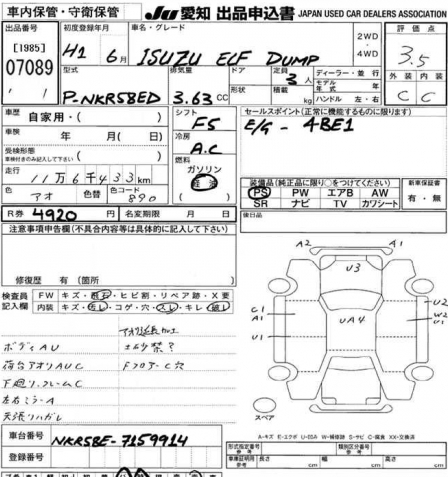 車内保管・守衛保管
JU 愛知 出品申込書 JAPAN USED CAR DEALERS ASSOCIATION
出品番号
[1985]
07089
初度登録年月
H1 6月
車名・グレード
ISUZU ELF DUMP
2WD
・
4WD
評価点
3.5
外装 内装
C C
型式
P-NKR58ED
排気量
3.63 CC
ドア
形状
定員
3人
積載
kg
ディーラー・並行
モデル年式 年
ハンドル 左・右
車歴
自家用・( )
車検
年 月( 日)
受検形態
車検付きのみ記入して下さい ( )
走行
11万6千433 km
色
アオ
色替
色コード
890
シフト
F5
冷房
A.C
燃料
ガソリン
軽油
( )
セールスポイント(正常に機能するものに限ります)
E/G - 4BE1
装備品(純正品に限り○をつけてください)
PS PW エアB AW
SR ナビ TV カワシート
新車保証書
有・無
R券 4920 円
名変期限 月 日
後日品
注意事項申告欄(不具合内容等は具体的に記入して下さい)
修復歴 有 (箇所 )
検査員
記入欄
FW キズ・飛石・ヒビ割・リペア跡・X要
内装 キズ・汚レ・コゲ・穴・スレ・キレ・破レ
ボディAU
荷台アオリAUC
下廻リ、フレームC
左右ミラーA
天張リハガレ
アオリ延長加工
土砂禁?
FフロアーC穴
A2 A1
U3
C1
A1
U1
UA4
U2
W2
U1
スペア
A-キズ E-エクボ U-凹み W-補修跡 S-サビ C-腐食 XX-交換済
車台番号
NKR58E-7159914
登録番号
型式指定番号
類別区分番号
車庫証明用
参考
長さ cm
幅 cm
高さ cm